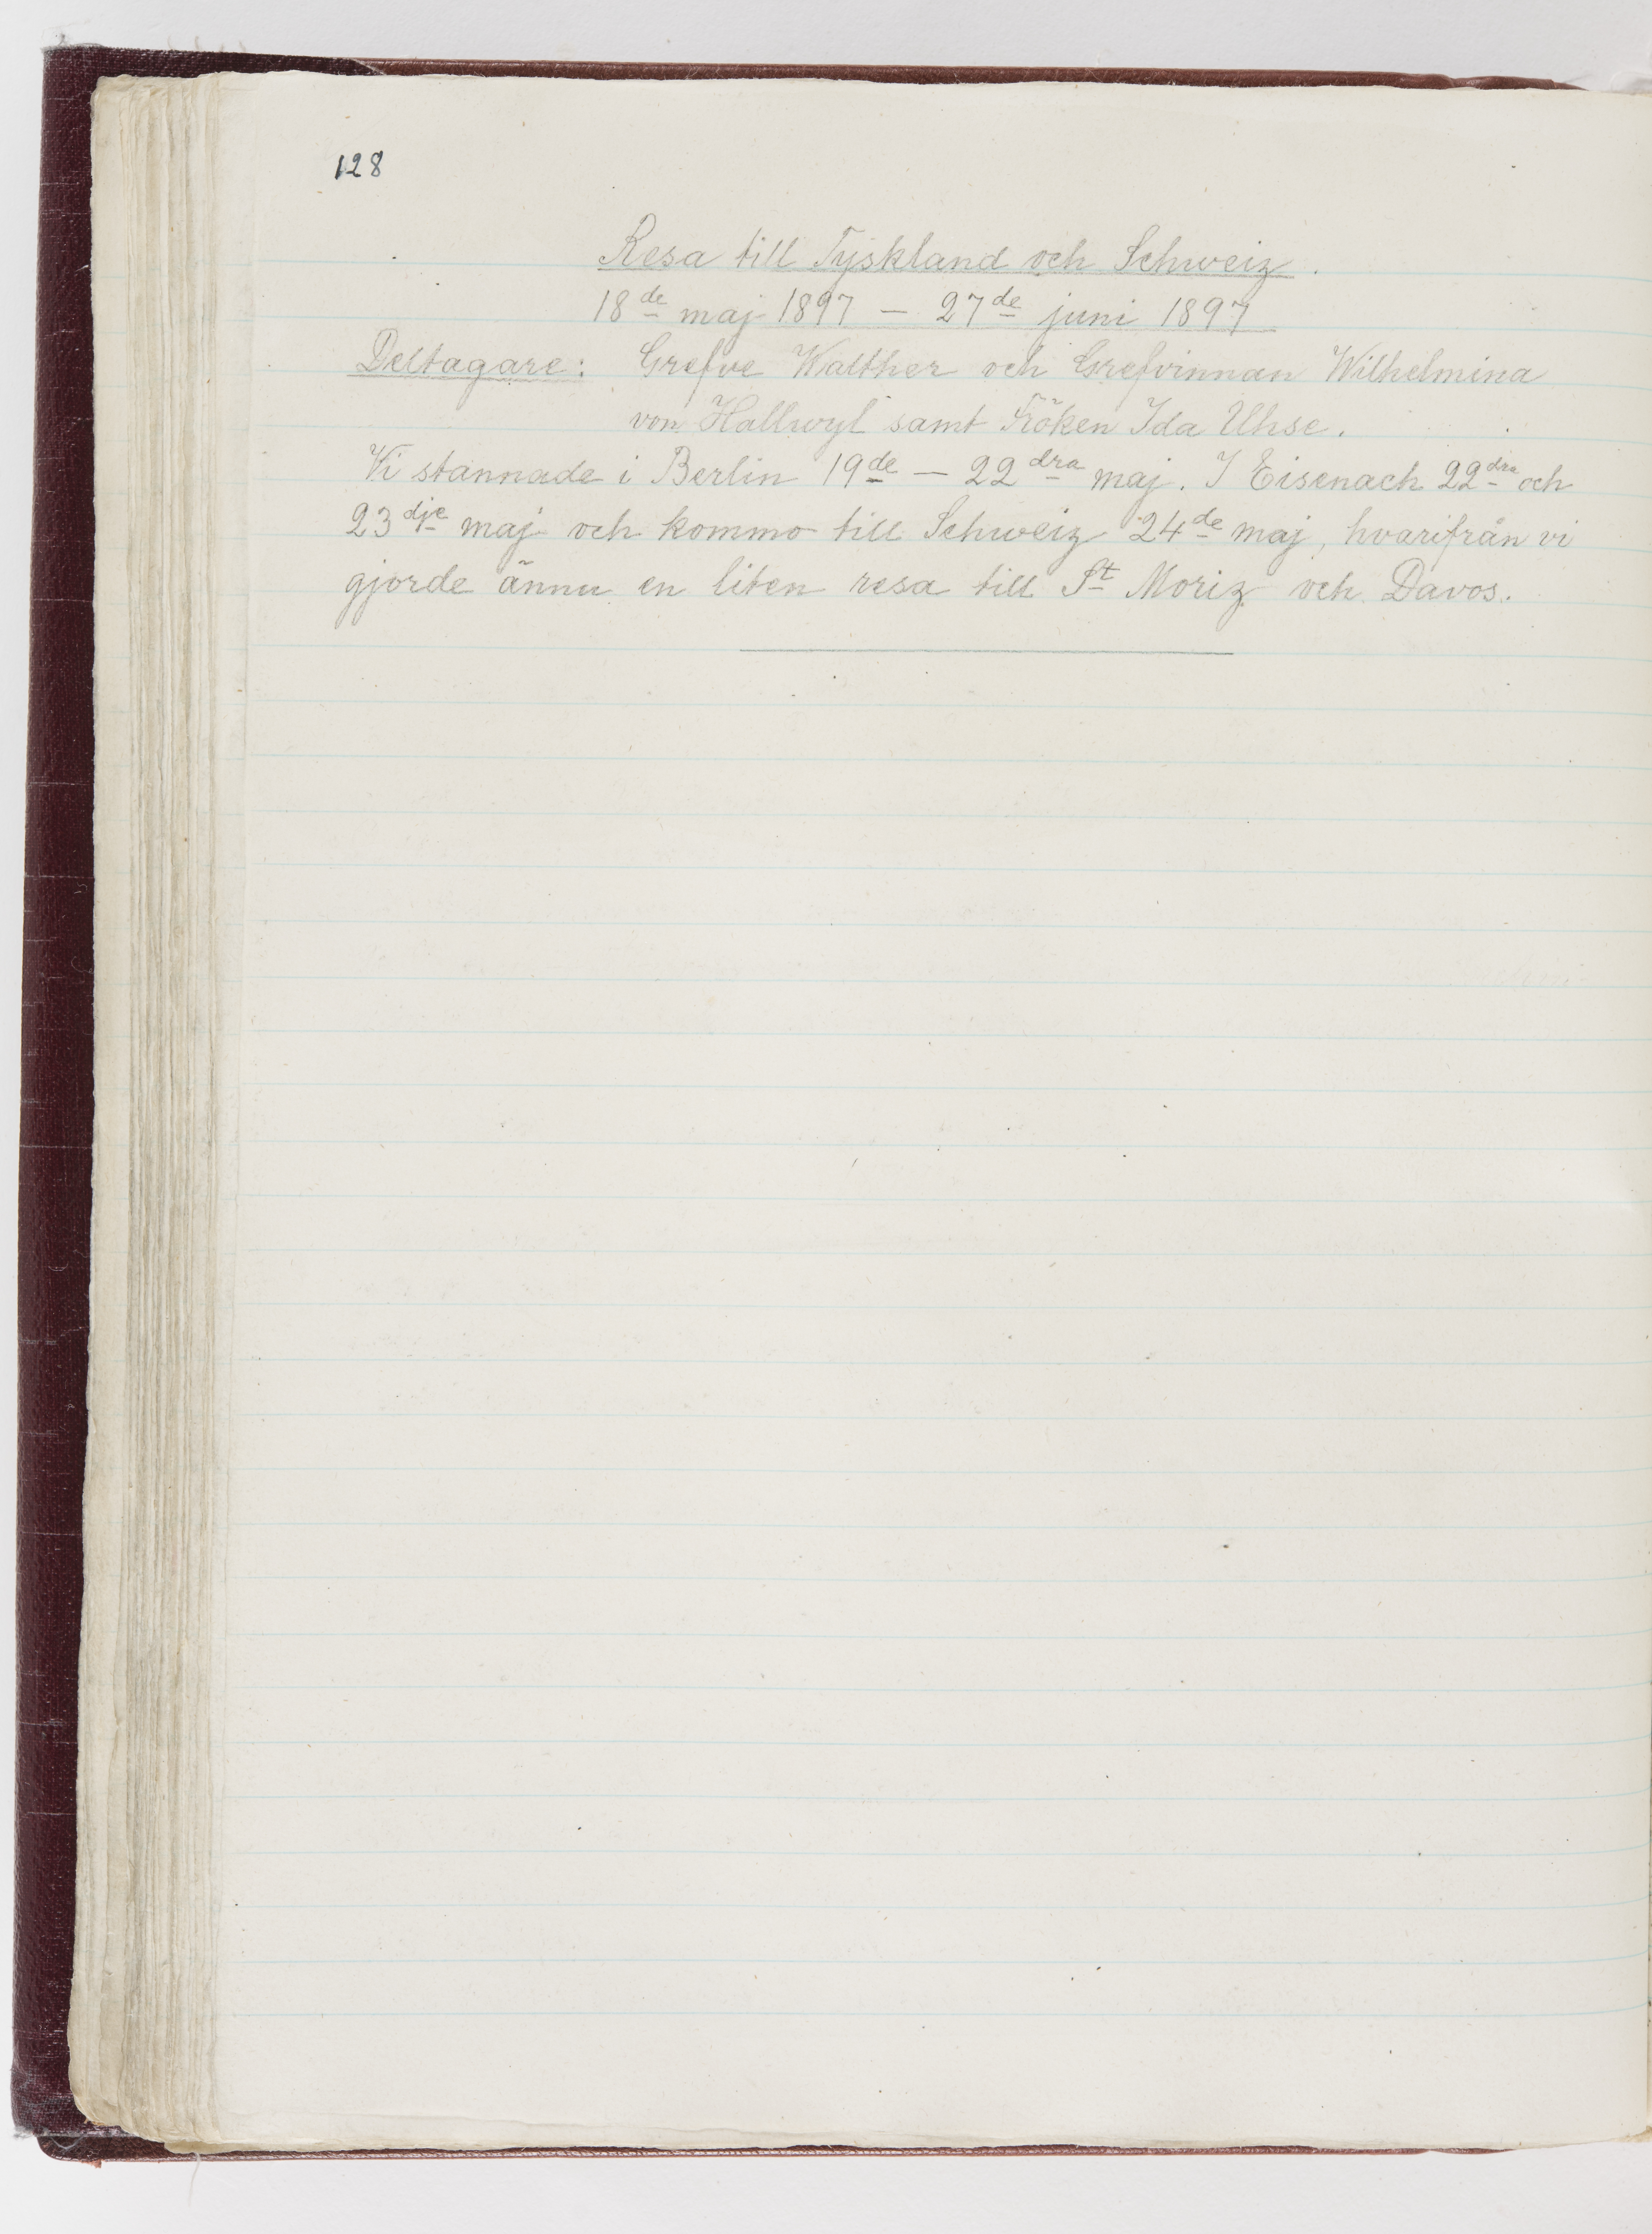 128
Resa till Tyskland och Schweiz.
18de maj 1897 — 27de juni 1897
Deltagare: Grefve Walther och Grefvinnan Wilhelmina
von Hallwyl samt Fröken Ida Uhse.
Vi stannade i Berlin 19de — 22dra maj. I Eisenach 22dra och
23dje maj och kommo till Schweiz 24de maj, hvarifrån vi
gjorde ännu en liten resa till St Moriz och Davos.